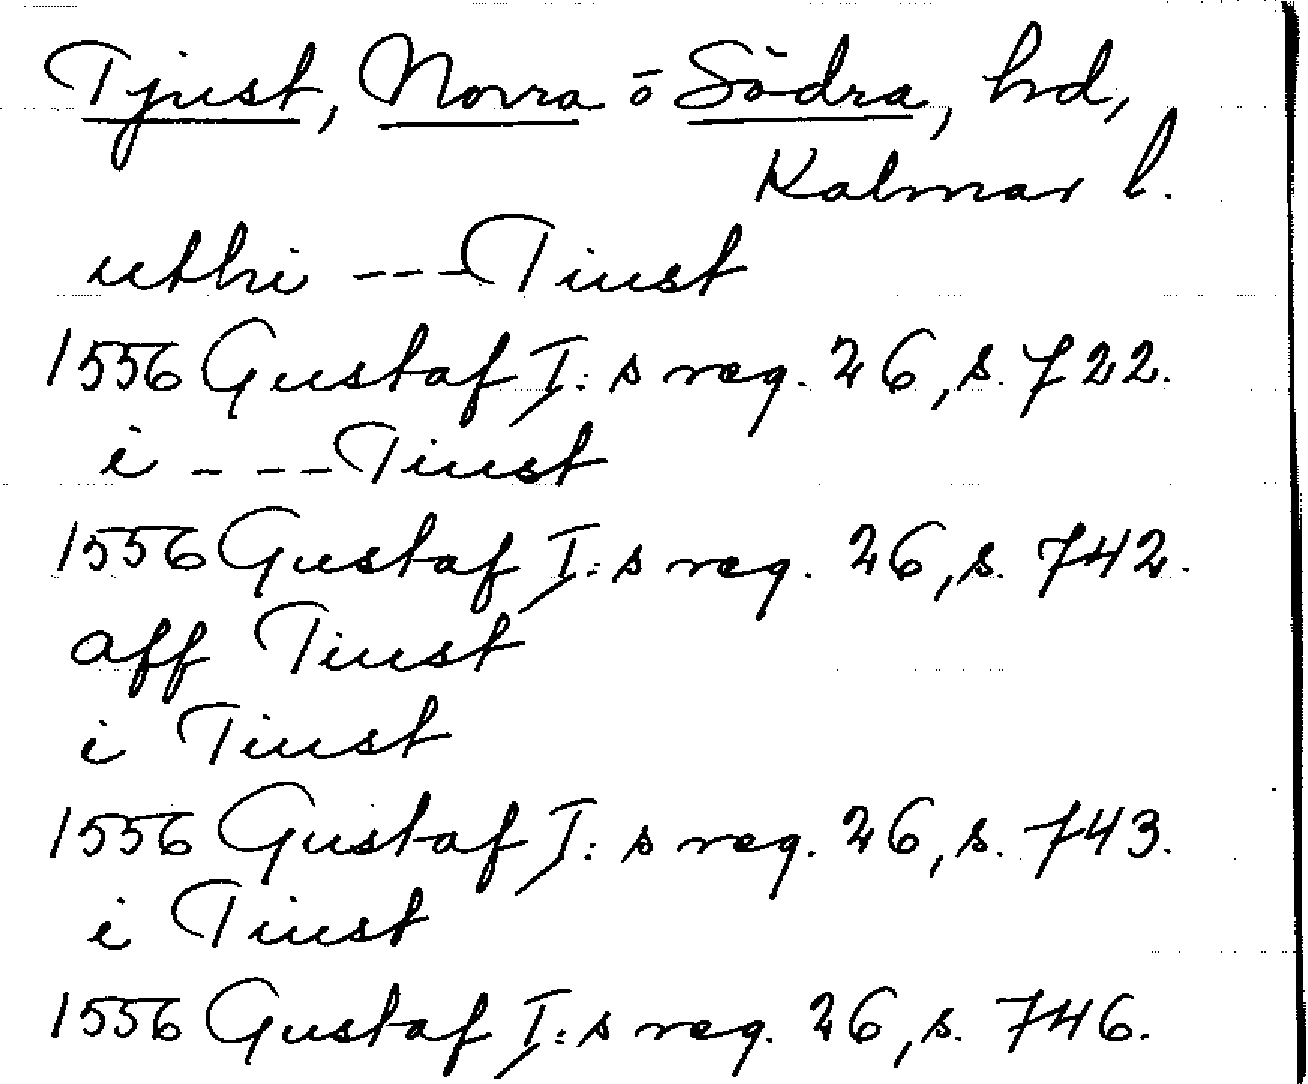 Tjust, Norra o Södra, hd,
Kalmar l.
uthi --- Tiust
1556 Gustaf I:s reg. 26, s. 722.
i - - - Tiust
1556 Gustaf I:s reg. 26, s. 742.
aff Tiust
i Tiust
1556 Gustaf I:s reg. 26, s. 743.
i Tiust
1556 Gustaf I:s reg. 26, s. 746.